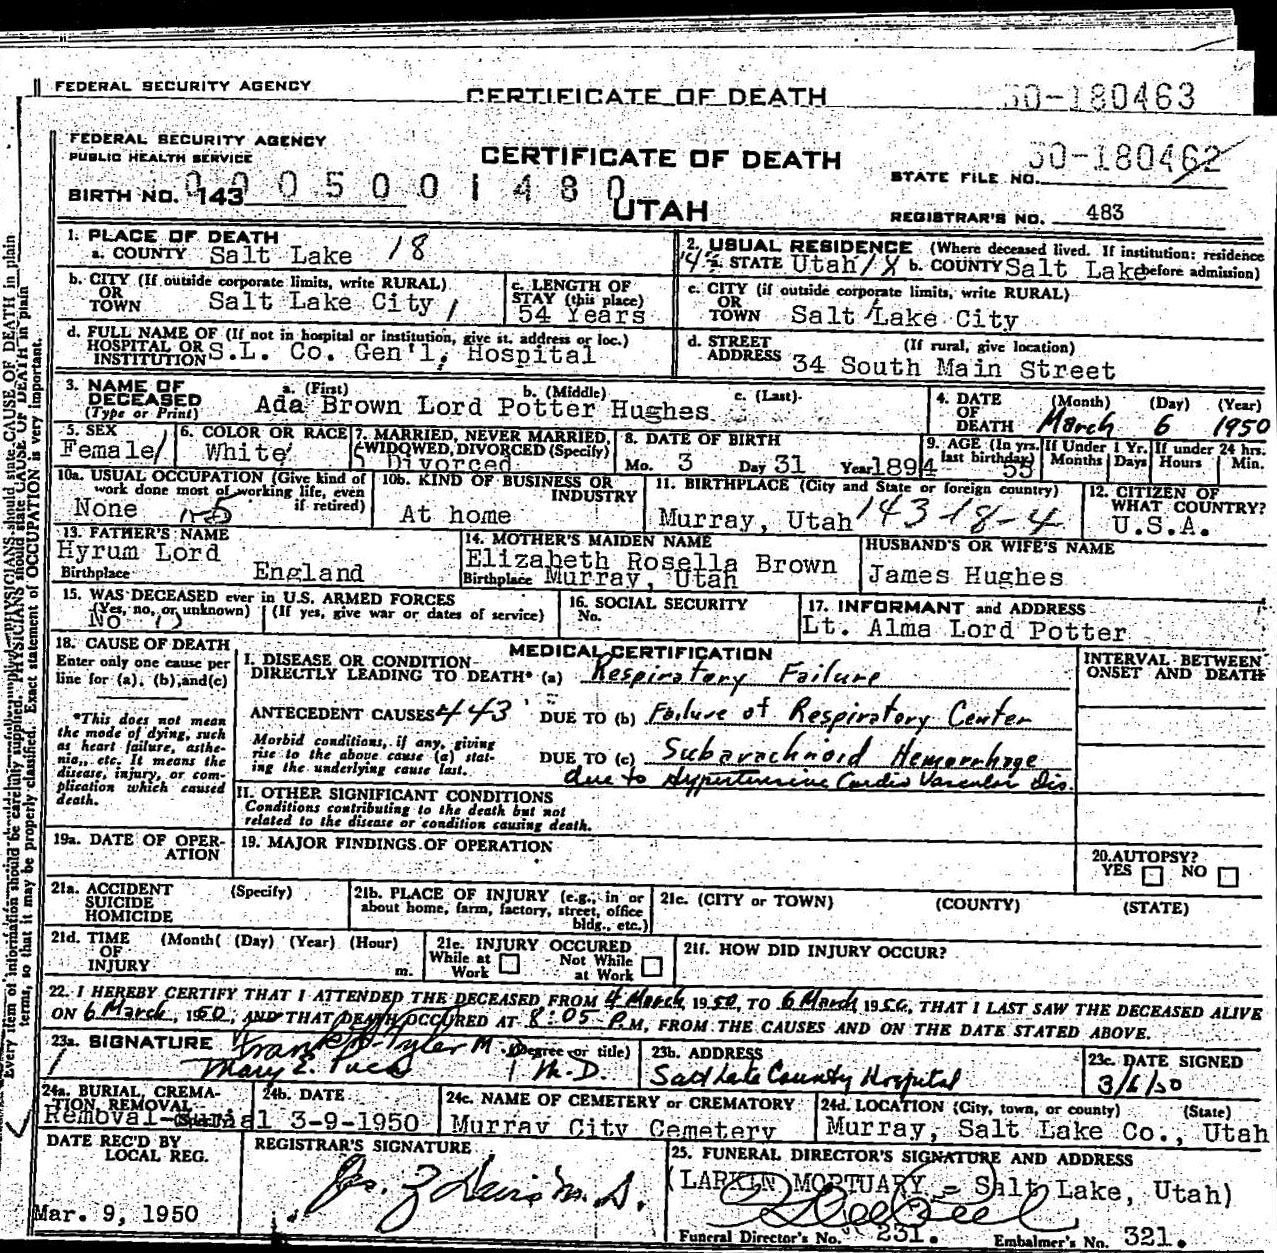 FEDERAL SECURITY AGENCY CERTIFICATE OF DEATH 50-180463
FEDERAL SECURITY AGENCY
PUBLIC HEALTH SERVICE CERTIFICATE OF DEATH STATE FILE NO. 50-180462
BIRTH NO. 143 0005001480 UTAH REGISTRAR'S NO. 483
1. PLACE OF DEATH
a. COUNTY Salt Lake 18
2. USUAL RESIDENCE (Where deceased lived. If institution: residence before admission)
a. STATE Utah b. COUNTY Salt Lake
b. CITY (If outside corporate limits, write RURAL)
OR TOWN Salt Lake City
c. LENGTH OF STAY (this place)
54 Years
c. CITY (if outside corporate limits, write RURAL)
OR TOWN Salt Lake City
d. FULL NAME OF (If not in hospital or institution, give st. address or loc.)
HOSPITAL OR INSTITUTION S.L. Co. Gen'l, Hospital
d. STREET ADDRESS (If rural, give location)
34 South Main Street
3. NAME OF DECEASED (Type or Print)
a. (First) b. (Middle) c. (Last)
Ada Brown Lord Potter Hughes
4. DATE OF DEATH (Month) (Day) (Year)
March 6 1950
5. SEX
Female
6. COLOR OR RACE
White
7. MARRIED, NEVER MARRIED, WIDOWED, DIVORCED (Specify)
5 Divorced
8. DATE OF BIRTH
Mo. 3 Day 31 Year 1894
9. AGE (In yrs. last birthday) 55
If Under 1 Yr. Months Days
If under 24 hrs. Hours Min.
10a. USUAL OCCUPATION (Give kind of work done most of working life, even if retired)
None
10b. KIND OF BUSINESS OR INDUSTRY
At home
11. BIRTHPLACE (City and State or foreign country)
Murray, Utah 143-18-4
12. CITIZEN OF WHAT COUNTRY?
U.S.A.
13. FATHER'S NAME
Hyrum Lord
Birthplace England
14. MOTHER'S MAIDEN NAME
Elizabeth Rosella Brown
Birthplace Murray, Utah
HUSBAND'S OR WIFE'S NAME
James Hughes
15. WAS DECEASED ever in U.S. ARMED FORCES
(Yes, no, or unknown) (If yes, give war or dates of service)
No
16. SOCIAL SECURITY No.
17. INFORMANT and ADDRESS
Lt. Alma Lord Potter
18. CAUSE OF DEATH
Enter only one cause per line for (a), (b), and (c)
*This does not mean the mode of dying, such as heart failure, asthenia, etc. It means the disease, injury, or complication which caused death.
MEDICAL CERTIFICATION
I. DISEASE OR CONDITION
DIRECTLY LEADING TO DEATH* (a) Respiratory Failure
INTERVAL BETWEEN ONSET AND DEATH
ANTECEDENT CAUSES 443 DUE TO (b) Failure of Respiratory Center
Morbid conditions, if any, giving rise to the above cause (a) stating the underlying cause last.
DUE TO (c) Subarachnoid Hemorrhage
due to Hypertensive Cardio Vascular Dis.
II. OTHER SIGNIFICANT CONDITIONS
Conditions contributing to the death but not related to the disease or condition causing death.
19a. DATE OF OPERATION
19. MAJOR FINDINGS OF OPERATION
20. AUTOPSY?
YES NO
21a. ACCIDENT SUICIDE HOMICIDE (Specify)
21b. PLACE OF INJURY (e.g., in or about home, farm, factory, street, office bldg., etc.)
21c. (CITY or TOWN) (COUNTY) (STATE)
21d. TIME OF INJURY (Month( (Day) (Year) (Hour) m.
21e. INJURY OCCURED
While at Work Not While at Work
21f. HOW DID INJURY OCCUR?
22. I HEREBY CERTIFY THAT I ATTENDED THE DECEASED FROM 4 March 1950, TO 6 March 1950, THAT I LAST SAW THE DECEASED ALIVE
ON 6 March, 1950, AND THAT DEATH OCCURED AT 8:05 P.M, FROM THE CAUSES AND ON THE DATE STATED ABOVE.
23a. SIGNATURE (Degree or title)
Frank Tyler M.D.
Mary E. M.D.
23b. ADDRESS
Salt Lake County Hospital
23c. DATE SIGNED
3/6/50
24a. BURIAL, CREMATION, REMOVAL
Removal-Burial
24b. DATE
3-9-1950
24c. NAME OF CEMETERY or CREMATORY
Murray City Cemetery
24d. LOCATION (City, town, or county) (State)
Murray, Salt Lake Co., Utah
DATE REC'D BY LOCAL REG.
Mar. 9, 1950
REGISTRAR'S SIGNATURE
Jas. Z Davis M.D.
25. FUNERAL DIRECTOR'S SIGNATURE AND ADDRESS
(LARKIN MORTUARY - Salt Lake, Utah)
Funeral Director's No. 231. Embalmer's No. 321.
Every item of information should be carefully supplied. PHYSICIANS should state CAUSE OF DEATH in plain
terms, so that it may be properly classified. Exact statement of OCCUPATION is very important.